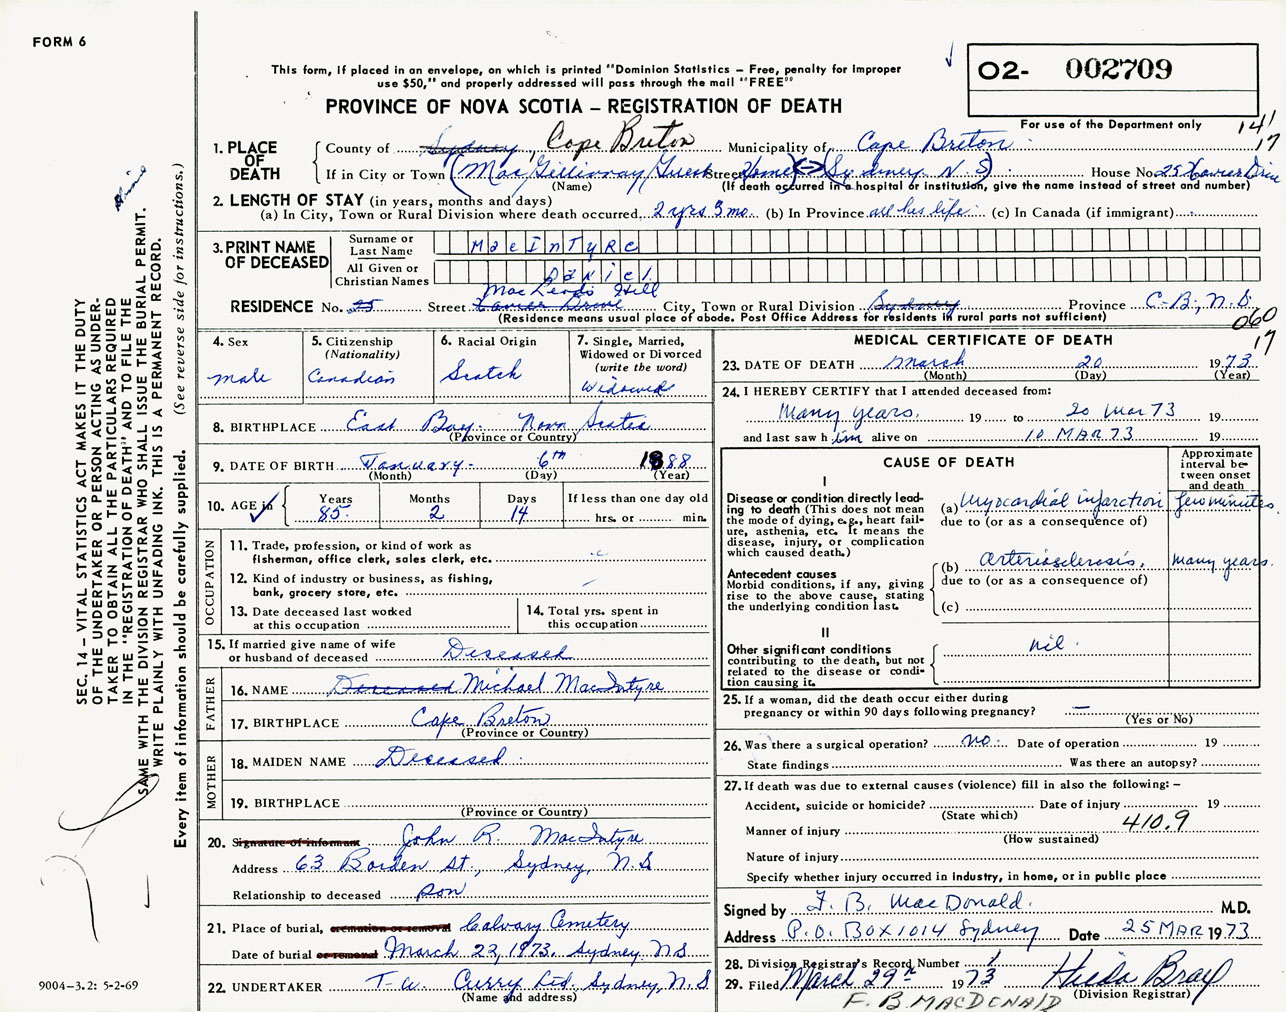 FORM 6
This form, if placed in an envelope, on which is printed "Dominion Statistics – Free, penalty for improper
use $50," and properly addressed will pass through the mail "FREE"
O2- 002709
For use of the Department only
PROVINCE OF NOVA SCOTIA – REGISTRATION OF DEATH
141
17
1. PLACE OF DEATH
County of Sydney, Cape Breton Municipality of Cape Breton
If in City or Town (MacGillivray Guest Street Home) (Sydney N.S) House No. 25 Xavier Drive
(Name) (If death occurred in a hospital or institution, give the name instead of street and number)
2. LENGTH OF STAY (in years, months and days)
(a) In City, Town or Rural Division where death occurred 2 yrs 3 mo. (b) In Province all his life (c) In Canada (if immigrant)
3. PRINT NAME OF DECEASED
Surname or Last Name MacIntyre
All Given or Christian Names Daniel
MacLeods Hill
RESIDENCE No. 25 Street Xavier Drive City, Town or Rural Division Sydney Province C-B, N.S.
(Residence means usual place of abode. Post Office Address for residents in rural parts not sufficient)
060
17
4. Sex
male
5. Citizenship
(Nationality)
Canadian
6. Racial Origin
Scotch
7. Single, Married,
Widowed or Divorced
(write the word)
Widowed
8. BIRTHPLACE East Bay. Nova Scotia
(Province or Country)
9. DATE OF BIRTH January 6th 1888
(Month) (Day) (Year)
10. AGE in
Years 85
Months 2
Days 14
If less than one day old
hrs. or min.
OCCUPATION
11. Trade, profession, or kind of work as
fisherman, office clerk, sales clerk, etc.
12. Kind of industry or business, as fishing,
bank, grocery store, etc. –
13. Date deceased last worked
at this occupation
14. Total yrs. spent in
this occupation
15. If married give name of wife
or husband of deceased Deseased
FATHER
16. NAME Deceased Michael MacIntyre
17. BIRTHPLACE Cape Breton
(Province or Country)
MOTHER
18. MAIDEN NAME Deceased
19. BIRTHPLACE
(Province or Country)
20. Signature of informant John R. MacIntyre
Address 63 Borden St., Sydney, N.S
Relationship to deceased son
21. Place of burial, cremation or removal Calvary Cemetery
Date of burial or removal March 23, 1973. Sydney, N.S
22. UNDERTAKER T.W. Curry Ltd. Sydney, N.S
(Name and address)
MEDICAL CERTIFICATE OF DEATH
23. DATE OF DEATH March 20 1973
(Month) (Day) (Year)
24. I HEREBY CERTIFY that I attended deceased from:
Many years. 19 to 20 Mar 73 19
and last saw h im alive on 10 MAR 73 19
CAUSE OF DEATH
Approximate
interval be-
tween onset
and death
I
Disease or condition directly lead-
ing to death (This does not mean
the mode of dying, e.g., heart fail-
ure, asthenia, etc. It means the
disease, injury, or complication
which caused death.)
(a) Myocardial infarction few minutes.
due to (or as a consequence of)
Antecedent causes
Morbid conditions, if any, giving
rise to the above cause, stating
the underlying condition last.
(b) Arteriosclerosis, many years.
due to (or as a consequence of)
(c)
II
Other significant conditions
contributing to the death, but not
related to the disease or condi-
tion causing it.
nil.
25. If a woman, did the death occur either during
pregnancy or within 90 days following pregnancy? –
(Yes or No)
26. Was there a surgical operation? no. Date of operation 19
State findings Was there an autopsy?
27. If death was due to external causes (violence) fill in also the following: –
Accident, suicide or homicide? Date of injury 19
(State which)
410.9
Manner of injury
(How sustained)
Nature of injury
Specify whether injury occurred in industry, in home, or in public place
Signed by F. B. MacDonald. M.D.
Address P.O. BOX 1014 Sydney Date 25 MAR 1973
28. Division Registrar's Record Number 1
29. Filed March 29th 1973 Hilda Bray
(Division Registrar)
F. B. MACDONALD
SEC. 14 – VITAL STATISTICS ACT MAKES IT THE DUTY
OF THE UNDERTAKER OR PERSON ACTING AS UNDER-
TAKER TO OBTAIN ALL THE PARTICULARS REQUIRED
IN THE "REGISTRATION OF DEATH" AND TO FILE THE
SAME WITH THE DIVISION REGISTRAR WHO SHALL ISSUE THE BURIAL PERMIT.
WRITE PLAINLY WITH UNFADING INK. THIS IS A PERMANENT RECORD.
Every item of information should be carefully supplied. (See reverse side for instructions.)
9004-3.2: 5-2-69